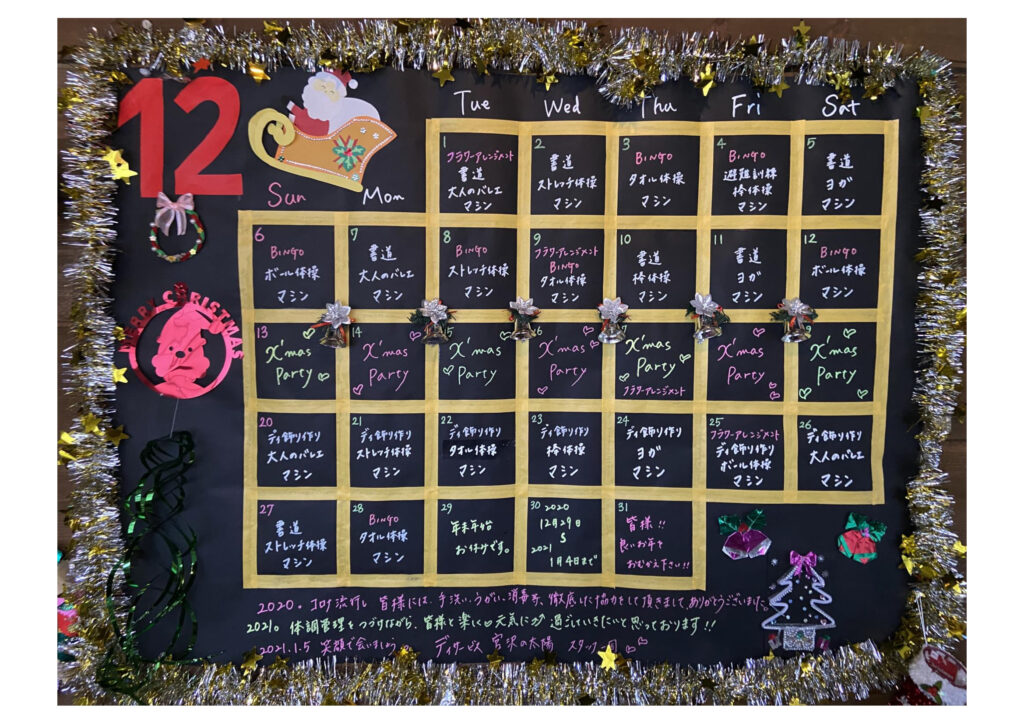 12
Tue Wed Thu Fri Sat
Sun Mon
1
フラワーアレンジメント
書道
大人のバレエ
マシン
2
書道
ストレッチ体操
マシン
3
BINGO
タオル体操
マシン
4
BINGO
避難訓練
棒体操
マシン
5
書道
ヨガ
マシン
6
BINGO
ボール体操
マシン
7
書道
大人のバレエ
マシン
8
BINGO
ストレッチ体操
マシン
9
フラワーアレンジメント
BINGO
タオル体操
マシン
10
書道
棒体操
マシン
11
書道
ヨガ
マシン
12
BINGO
ボール体操
マシン
MERRY CHRISTMAS
13
X'mas
Party
14
X'mas
Party
15
X'mas
Party
16
X'mas
Party
17
X'mas
Party
フラワーアレンジメント
18
X'mas
Party
19
X'mas
Party
20
ディ飾り作り
大人のバレエ
マシン
21
ディ飾り作り
ストレッチ体操
マシン
22
ディ飾り作り
タオル体操
マシン
23
ディ飾り作り
棒体操
マシン
24
ディ飾り作り
ヨガ
マシン
25
フラワーアレンジメント
ディ飾り作り
ボール体操
マシン
26
ディ飾り作り
大人のバレエ
マシン
27
書道
ストレッチ体操
マシン
28
BINGO
タオル体操
マシン
29
年末年始
お休みです。
30
2020
12月29日
〜
2021
1月4日まで
31
皆様!!
良いお年を
おむかえ下さい!!
2020。コロナ流行し 皆様には、手洗い、うがい、消毒等、徹底したご協力をして頂きまして、ありがとうございました。
2021。体調管理をつづけながら、皆様と楽しく元気に過ごしていきたいと思っております!!
2021.1.5 笑顔で会いましょう デイサービス 宮沢の太陽 スタッフ一同